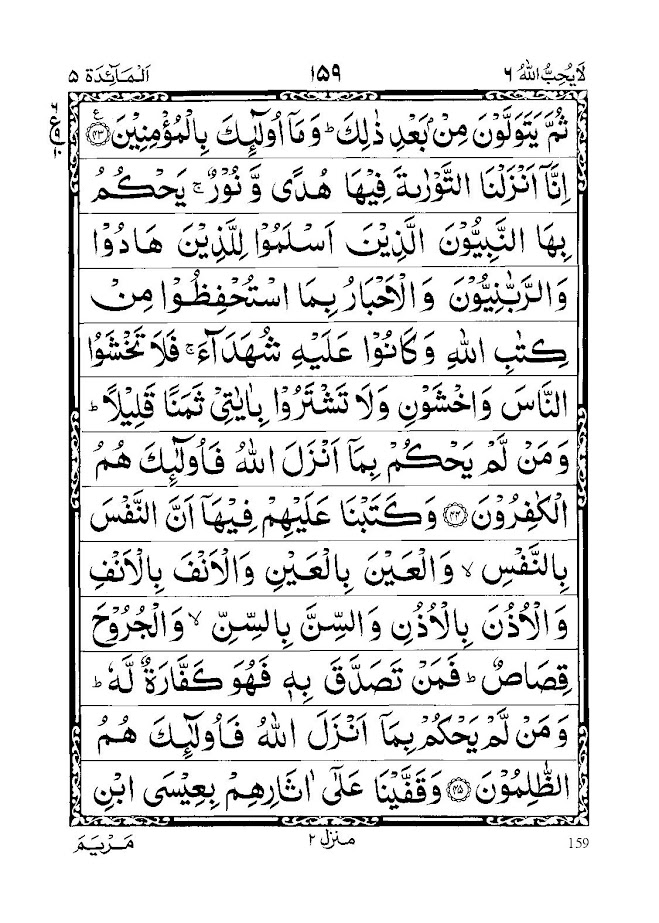 لَا يُحِبُّ اللهُ ٦ ١٥٩ اَلْمَآئِدَة ٥
ثُمَّ يَتَوَلَّوْنَ مِنْۢ بَعْدِ ذٰلِكَ ؕ وَمَاۤ اُولٰٓئِكَ بِالْمُؤْمِنِيْنَ ﴿۴۳﴾ ع
٦ ع ٩ ١٠
اِنَّاۤ اَنْزَلْنَا التَّوْرٰىةَ فِيْهَا هُدًى وَّ نُوْرٌ ۚ يَحْكُمُ
بِهَا النَّبِيُّوْنَ الَّذِيْنَ اَسْلَمُوْا لِلَّذِيْنَ هَادُوْا
وَالرَّبّٰنِيُّوْنَ وَالْاَحْبَارُ بِمَا اسْتُحْفِظُوْا مِنْ
كِتٰبِ اللهِ وَكَانُوْا عَلَيْهِ شُهَدَآءَ ۚ فَلَا تَخْشَوُا
النَّاسَ وَاخْشَوْنِ وَلَا تَشْتَرُوْا بِاٰيٰتِيْ ثَمَنًا قَلِيْلًا ؕ
وَمَنْ لَّمْ يَحْكُمْ بِمَاۤ اَنْزَلَ اللهُ فَاُولٰٓئِكَ هُمُ
الْكٰفِرُوْنَ ﴿۴۴﴾ وَكَتَبْنَا عَلَيْهِمْ فِيْهَاۤ اَنَّ النَّفْسَ
بِالنَّفْسِ ۙ وَالْعَيْنَ بِالْعَيْنِ وَالْاَنْفَ بِالْاَنْفِ
وَالْاُذُنَ بِالْاُذُنِ وَالسِّنَّ بِالسِّنِّ ۙ وَالْجُرُوْحَ
قِصَاصٌ ؕ فَمَنْ تَصَدَّقَ بِهٖ فَهُوَ كَفَّارَةٌ لَّهٗ ؕ
وَمَنْ لَّمْ يَحْكُمْ بِمَاۤ اَنْزَلَ اللهُ فَاُولٰٓئِكَ هُمُ
الظّٰلِمُوْنَ ﴿۴۵﴾ وَقَفَّيْنَا عَلٰٓى اٰثَارِهِمْ بِعِيْسَى ابْنِ
159 منزل ٢ مَرْيَمَ